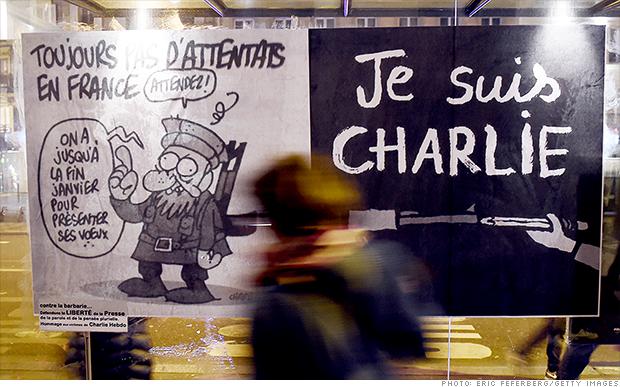 TOUJOURS PAS D'ATTENTATS
EN FRANCE
ATTENDEZ!
ON A
JUSQU'À
LA FIN
JANVIER
POUR
PRÉSENTER
SES VOEUX
contre la barbarie...
Défendons la LIBERTÉ de la Presse
de la parole et de la pensée plurielle.
Hommage aux victimes de Charlie Hebdo
Je suis
CHARLIE
PHOTO: ERIC FEFERBERG/GETTY IMAGES